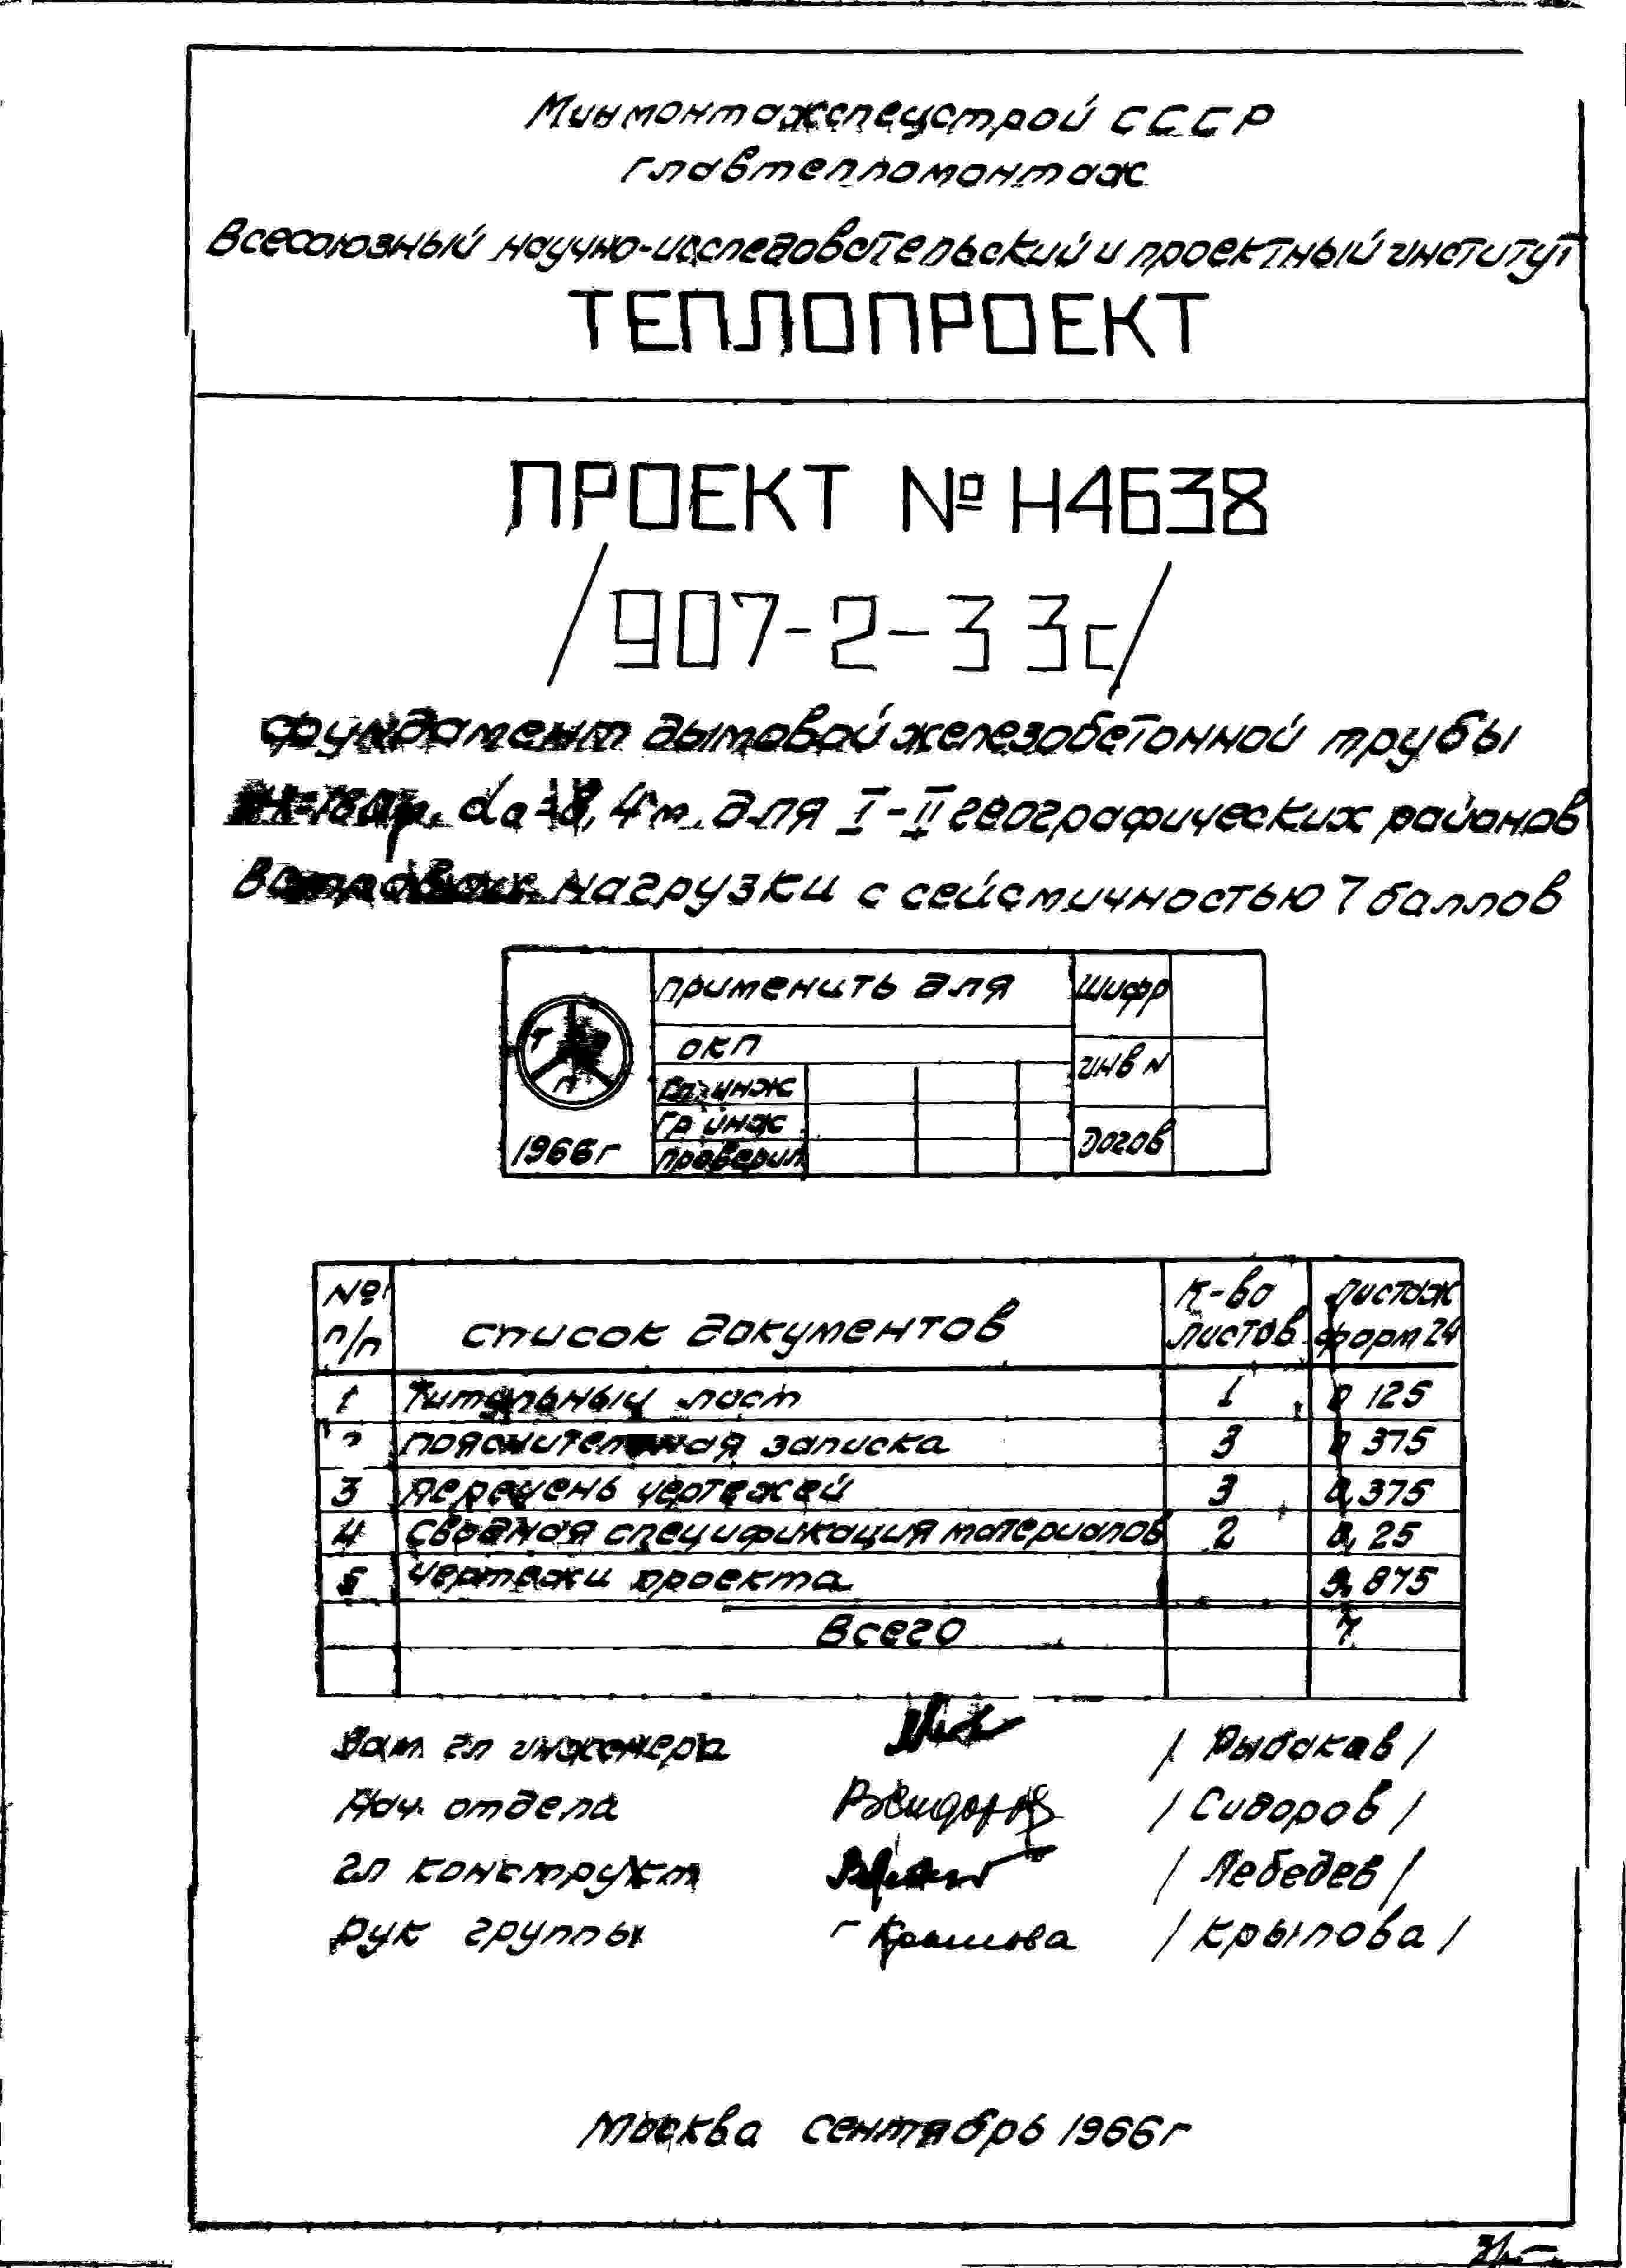 Минмонтажспецстрой СССР
главтепломонтаж
Всесоюзный научно-исследовательский и проектный институт
ТЕПЛОПРОЕКТ
ПРОЕКТ № Н4638
/907-2-33с/
фундамент дымовой железобетонной трубы
d₀=8,4м. для I-II географических районов
нагрузки с сейсмичностью 7 баллов
применить для Шифр
ОКП
инв N
Гл. инж
Гр инж
Догов
1966г проверил
№ п/п список документов к-во листов листаж форм 24
1 Титульный лист 1 0 125
2 пояснительная записка 3 0 375
3 перечень чертежей 3 0,375
4 сводная спецификация материалов 2 0,25
5 чертежи проекта 875
Всего 7
Зам гл инженера / Рыбаков /
Нач. отдела / Сидоров /
гл конструкт / Лебедев /
рук группы г Крылова / крылова /
Москва сентябрь 1966г